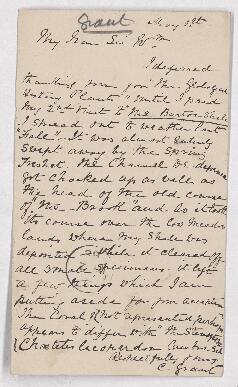 Grant
May 12th
My Dear Sir Wm
I deferred
thanking you for "The Geological
History Plants" until I paid
My 2nd visit to The Barton Shale
I spread out to weather last
"Fall". It was almost entirely
swept away by the Spring
Freshet. The Channel
got Chocked up as well as
the head of the old course
of "The Brook" and so it took
its course over the low Meadow
lands where my Shale was
deposited it cleared off
all small specimens. it left
a few things which I am
putting aside for your acceptance
The Coral if not represented perhaps
appears to differ with The Stampton
Respectfully yours
C. Grant